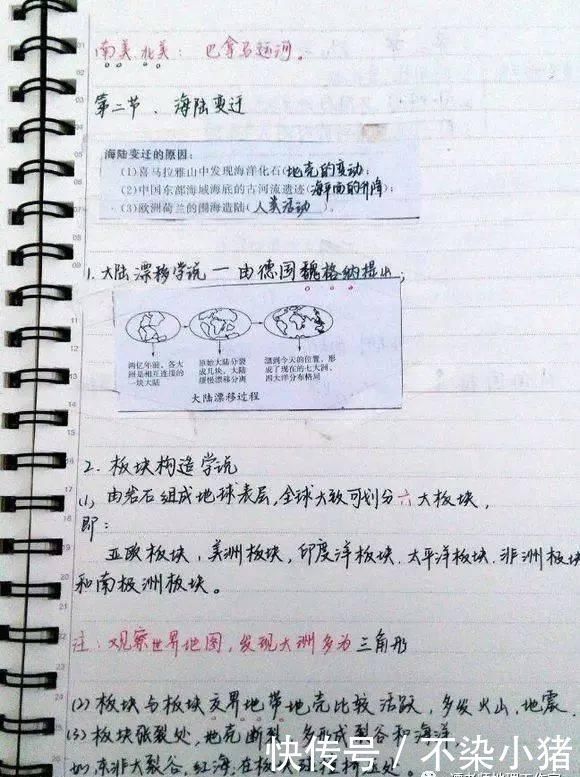 南美 北美：巴拿马运河。
第二节．海陆变迁
海陆变迁的原因：
(1)喜马拉雅山中发现海洋化石(地壳的变动)；
(2)中国东部海域海底的古河流遗迹(海平面的升降)；
(3)欧洲荷兰的围海造陆(人类活动)。
1.大陆漂移学说 — 由德国魏格纳提出；
两亿年前，各大洲是相互连接的一块大陆
原始大陆分裂成几块，大陆缓慢漂移分离
漂到今天的位置，形成了现在的七大洲、四大洋分布格局
大陆漂移过程
2.板块构造学说
(1)由岩石组成地球表层，全球大致可划分六大板块，
即：
亚欧板块，美洲板块，印度洋板块．太平洋板块．非洲板块
和南极洲板块。
注：观察世界地图，发现大洲多为三角形
(2)板块与板块交界地带地壳比较活跃，多发火山，地震．
(3)板块张裂处，地壳断裂，多形成裂谷和海洋，
如，东非大裂谷，红海，在板块
快传号 / 不染小猪